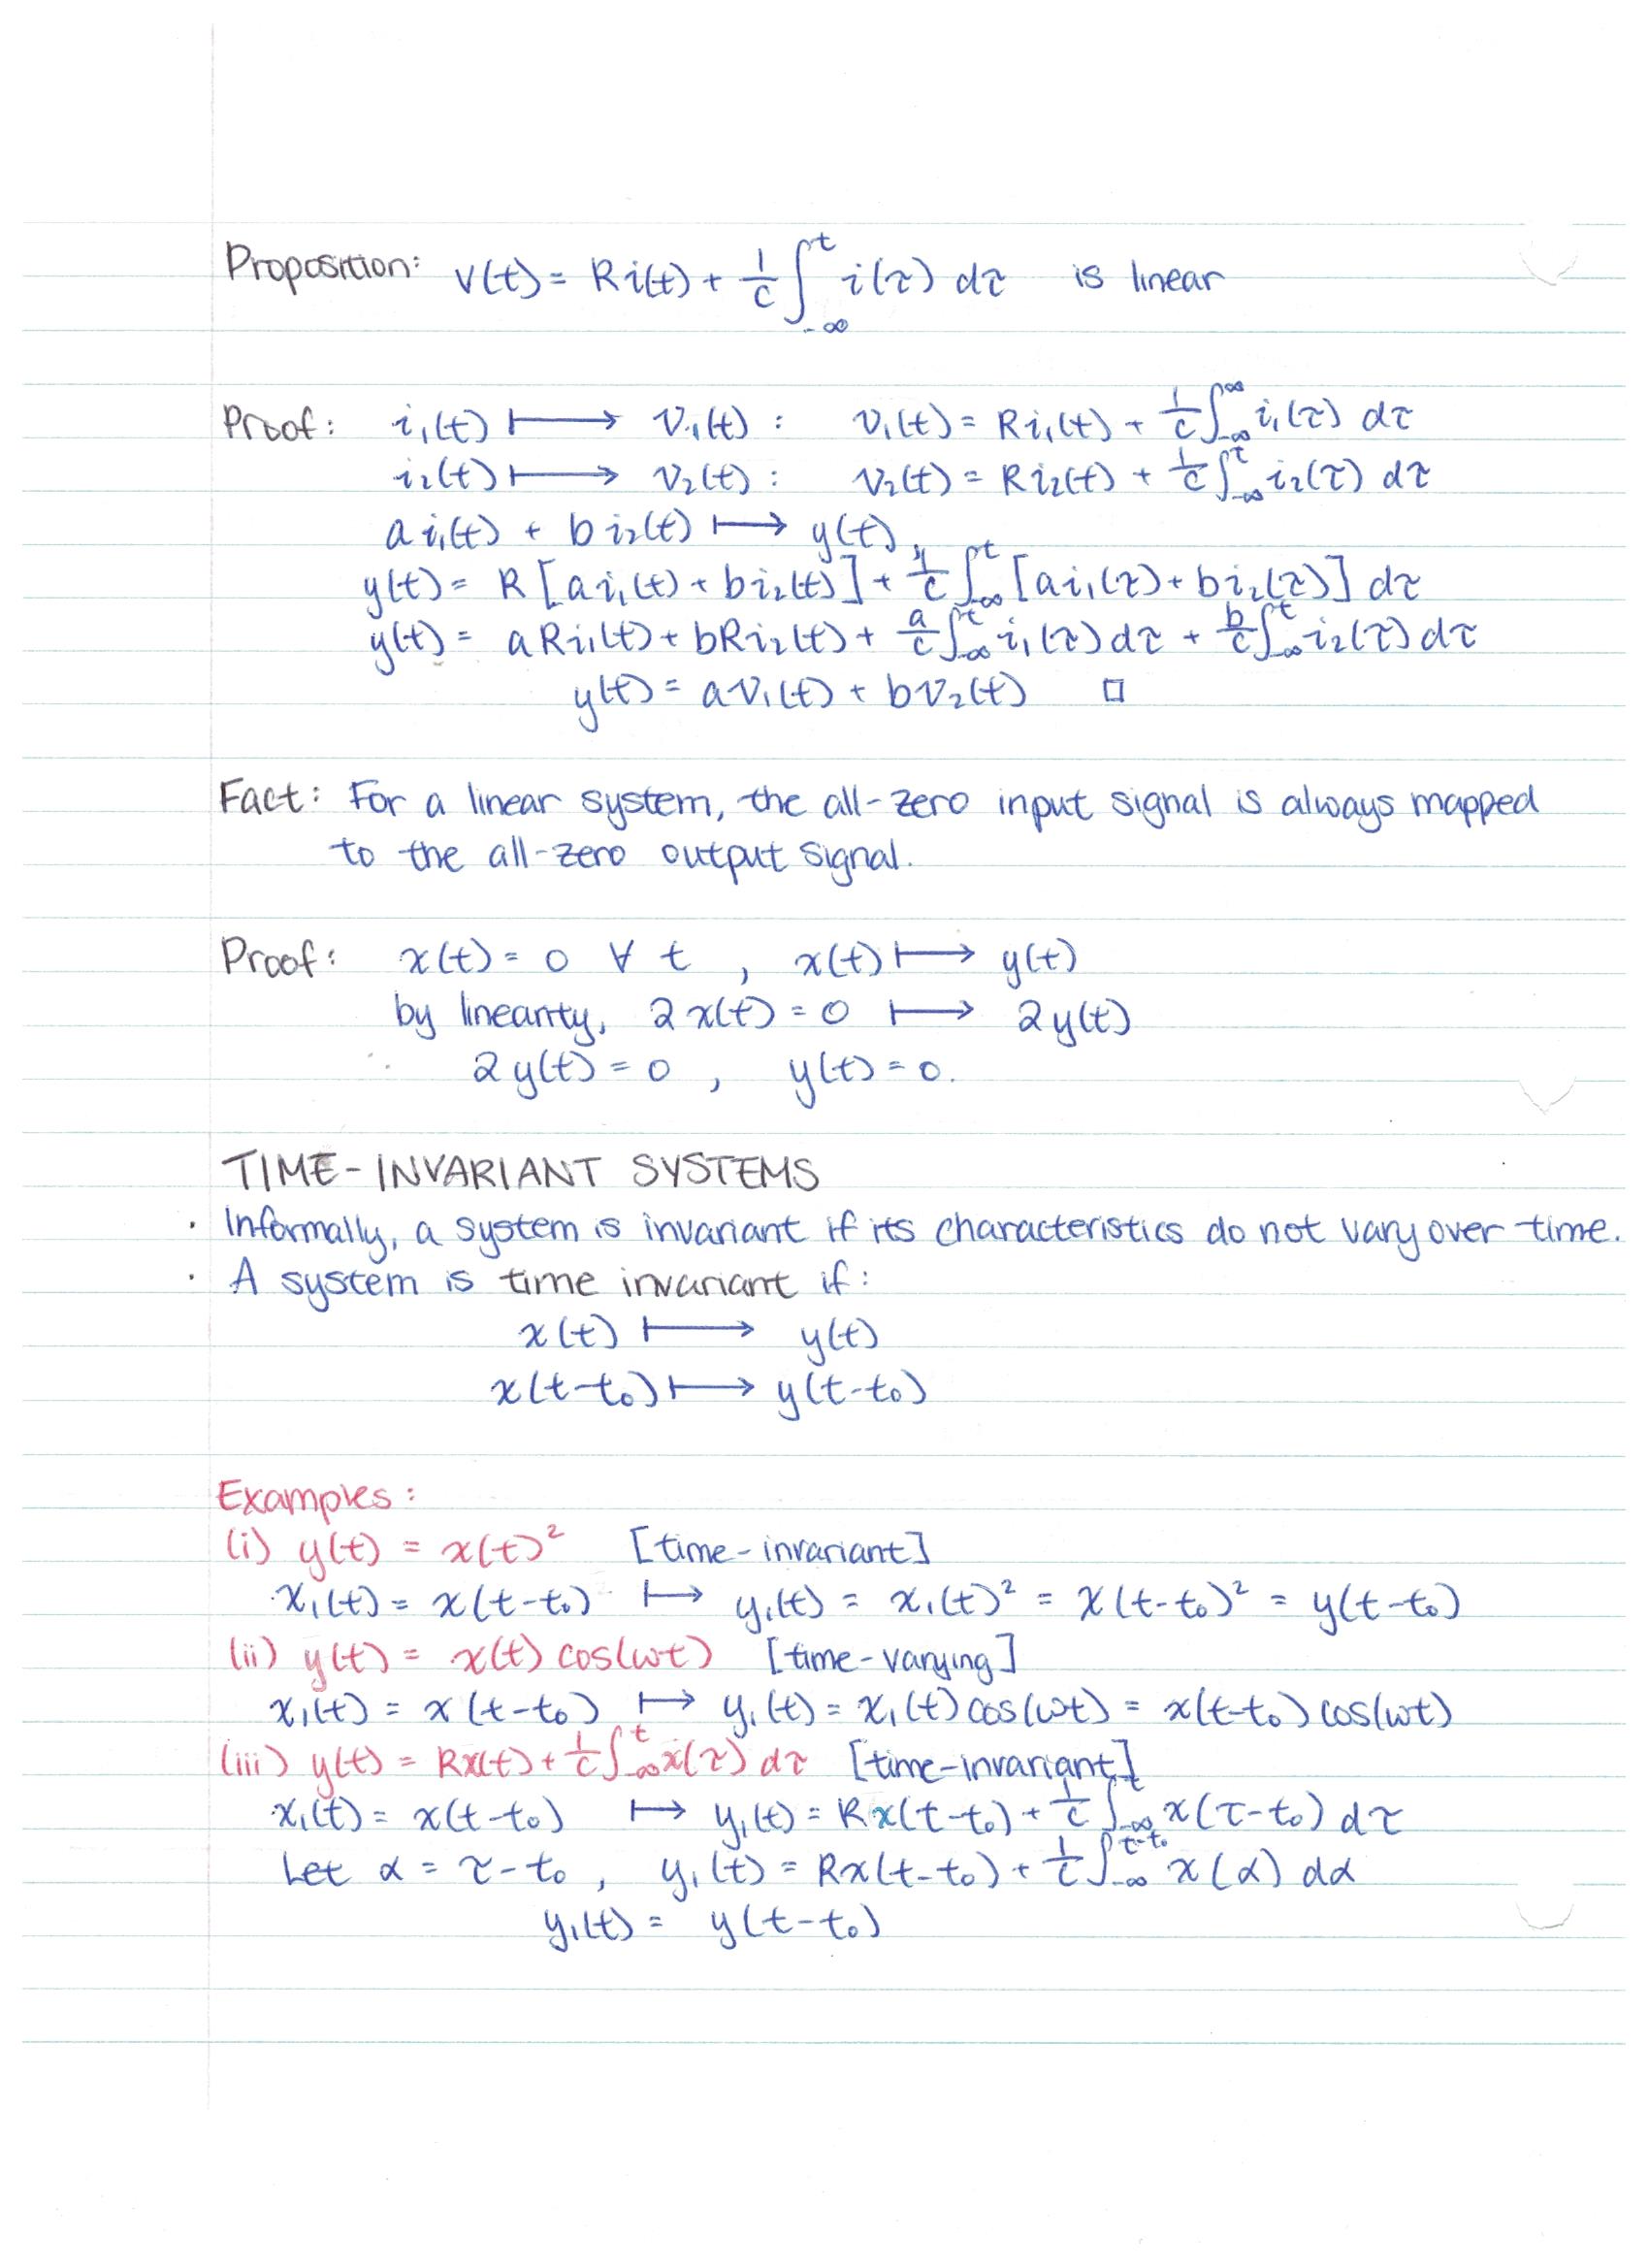 Proposition: v(t) = Ri(t) + 1/c ∫_{-∞}^{t} i(τ) dτ is linear
Proof: i₁(t) ⟼ v₁(t) : v₁(t) = Ri₁(t) + 1/c ∫_{-∞}^{∞} i₁(τ) dτ
i₂(t) ⟼ v₂(t) : v₂(t) = Ri₂(t) + 1/c ∫_{-∞}^{t} i₂(τ) dτ
a i₁(t) + b i₂(t) ⟼ y(t),
y(t) = R[a i₁(t) + b i₂(t)] + 1/c ∫_{-∞}^{t} [a i₁(τ) + b i₂(τ)] dτ
y(t) = aRi₁(t) + bRi₂(t) + a/c ∫_{-∞}^{t} i₁(τ) dτ + b/c ∫_{-∞}^{t} i₂(τ) dτ
y(t) = av₁(t) + bv₂(t) □
Fact: For a linear system, the all-zero input signal is always mapped
to the all-zero output signal.
Proof: x(t) = 0 ∀ t , x(t) ⟼ y(t)
by linearity, 2x(t) = 0 ⟼ 2y(t)
2y(t) = 0 , y(t) = 0.
TIME-INVARIANT SYSTEMS
· Informally, a system is invariant if its characteristics do not vary over time.
· A system is time invariant if:
x(t) ⟼ y(t)
x(t-t₀) ⟼ y(t-t₀)
Examples:
(i) y(t) = x(t)² [time-invariant]
x₁(t) = x(t-t₀) ⟼ y₁(t) = x₁(t)² = x(t-t₀)² = y(t-t₀)
(ii) y(t) = x(t) cos(ωt) [time-varying]
x₁(t) = x(t-t₀) ⟼ y₁(t) = x₁(t) cos(ωt) = x(t-t₀) cos(ωt)
(iii) y(t) = Rx(t) + 1/c ∫_{-∞}^{t} x(τ) dτ [time-invariant]
x₁(t) = x(t-t₀) ⟼ y₁(t) = Rx(t-t₀) + 1/c ∫_{-∞}^{t} x(τ-t₀) dτ
Let α = τ-t₀ , y₁(t) = Rx(t-t₀) + 1/c ∫_{-∞}^{t-t₀} x(α) dα
y₁(t) = y(t-t₀)